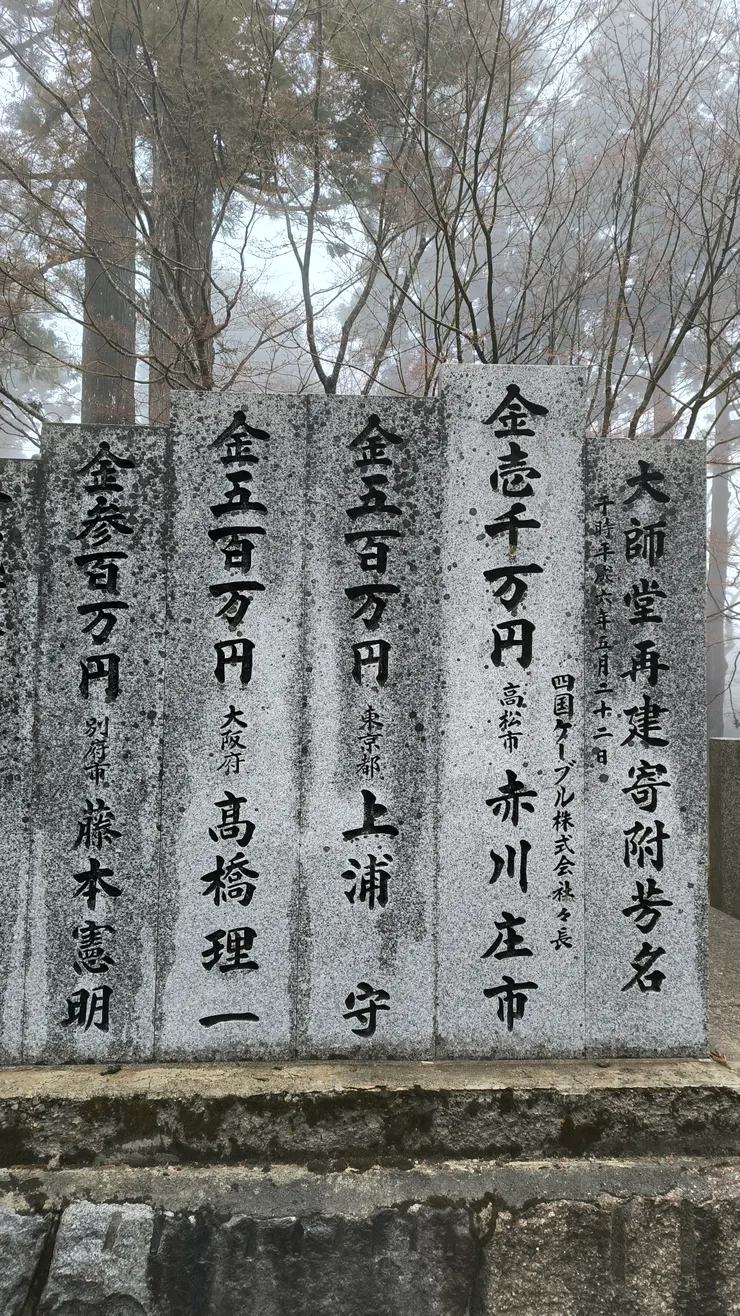 大師堂再建寄附芳名
干時平成六年五月二十二日
四国ケーブル株式会社々長
金壱千万円 高松市 赤川庄市
金五百万円 東京都 上浦守
金五百万円 大阪府 高橋理一
金参百万円 別府市 藤本憲明